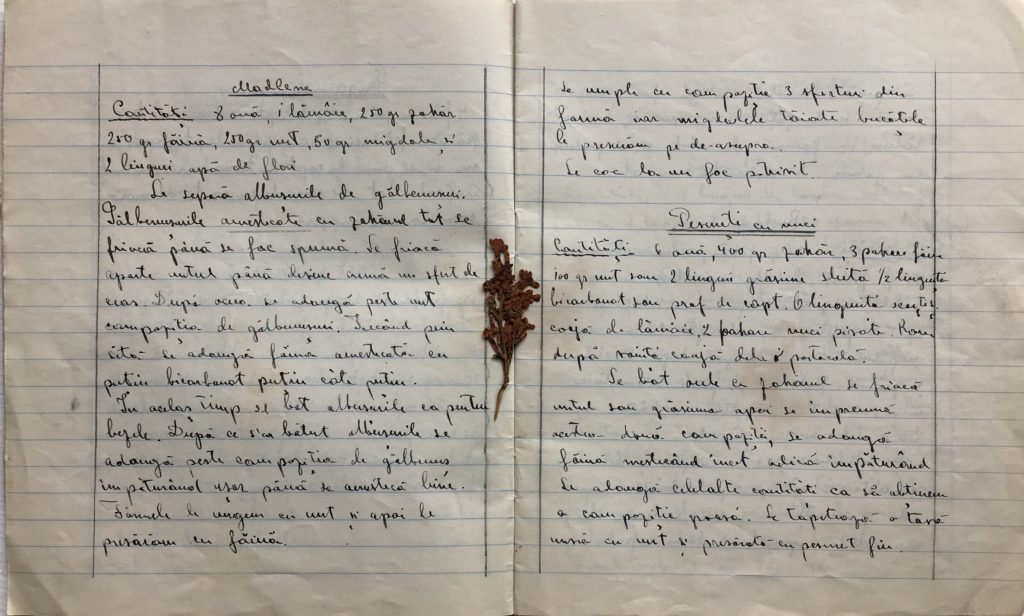 Madlene
Cantități 8 ouă, 1 lămâie, 250 gr zahăr
250 gr făină, 250 gr unt, 50 gr migdale și
2 linguri apă de flori
Se separă albușurile de gălbenușuri.
Gălbenușurile amestecate cu zahărul tot se
freacă până se fac spumă. Se freacă
aparte untul până devine cremă un sfert de
ceas. După aceea se adaugă peste unt
compoziția de gălbenușuri. Trecând prin
sită se adaugă făină amestecată cu
puțin bicarbonat puțin câte puțin.
În acelaș timp se bat albușurile ca pentru
bezele. După ce s'au bătut albușurile se
adaugă peste compoziția de gălbenuș
împăturând ușor până se amestecă bine.
Formele le ungem cu unt și apoi le
presărăm cu făină.
Se umple cu compoziție 3 sferturi din
formă iar migdalele tăiate bucățele
le presărăm pe de-asupra.
Se coc la un foc potrivit.
Pesmeți cu nuci
Cantități 6 ouă, 400 gr zahăr, 3 pahare făină
100 gr unt sau 2 linguri grăsime 1/2 linguriță
bicarbonat sau praf de copt. 6 lingurițe
coajă de lămâie, 2 pahare nuci pisate.
după coaja dela portocală.
Se bat ouăle cu zahărul se freacă
untul sau grăsimea apoi se împreună
aceste două compoziții, se adaugă
făină mestecând încet adică împăturând
Se adaugă celelalte cantități ca să obținem
o compoziție groasă. Se tăpițează o tavă
unsă cu unt și presărată cu pesmet fin.